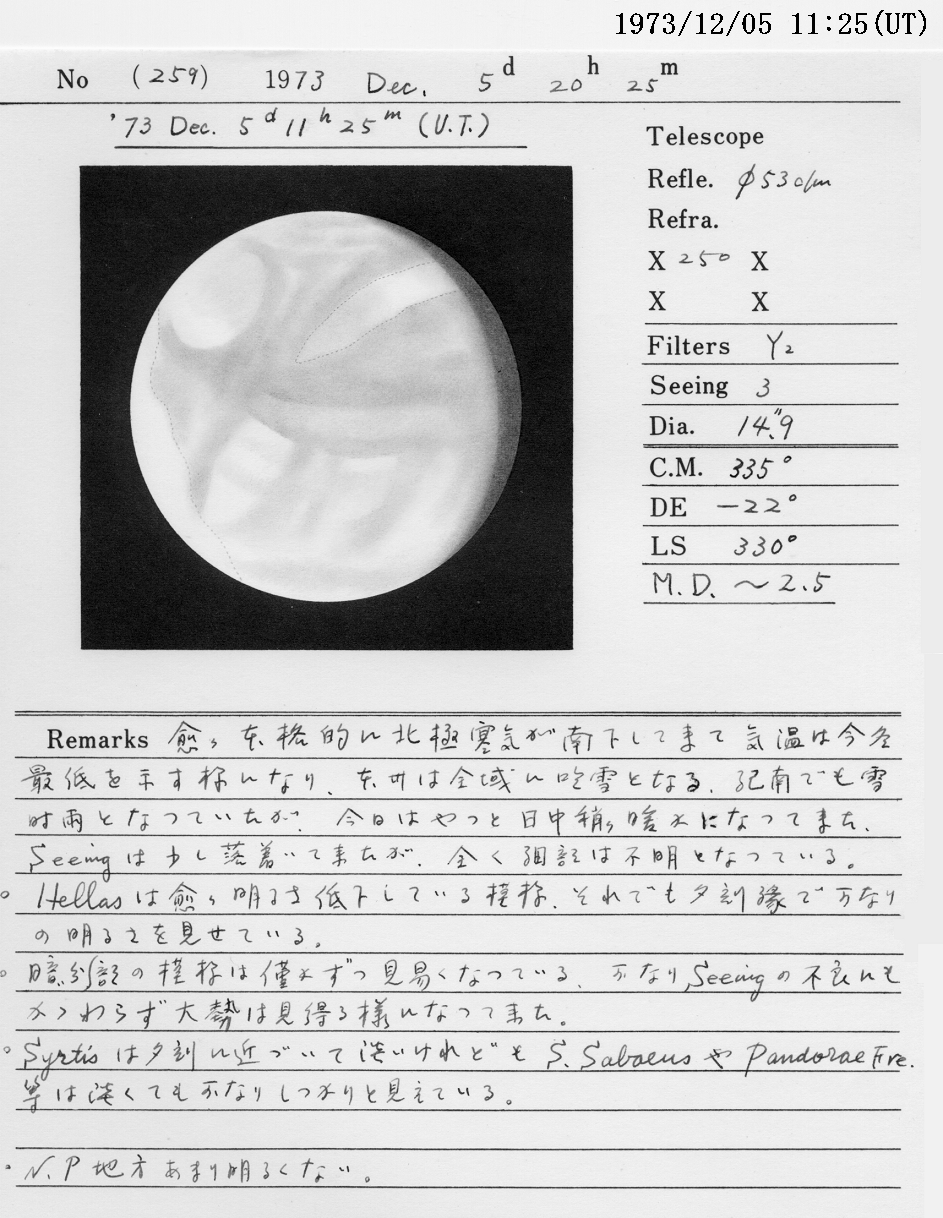 1973/12/05 11:25(UT)
No (259) 1973 Dec. 5d 20h 25m
'73 Dec. 5d 11h 25m (U.T.)
Telescope
Refle. φ53c/m
Refra.
X 250 X
X X
Filters Y2
Seeing 3
Dia. 14."9
C.M. 335°
DE −22°
LS 330°
M.D. ~2.5
Remarks 愈々本格的に北極寒気が南下して来て気温は今冬
最低を示す様になり、本州は全域に吹雪となる、紀南でも雪
時雨となっていたが、今日はやっと日中稍々暖かになって来た、
Seeingは少し落着いて来たが、全く細部は不明となっている。
○ Hellasは愈々明るさ低下している模様、それでも夕刻縁で可なり
の明るさを見せている。
○ 暗斑部の模様は僅かずつ見易くなっている、可なりSeeingの不良にも
かゝわらず大勢は見得る様になって来た。
○ Syrtisは夕刻に近づいて淡いけれども S. Sabaeus や Pandorae Fre.
等は淡くても可なりしっかりと見えている。
○ N.P地方あまり明るくない。